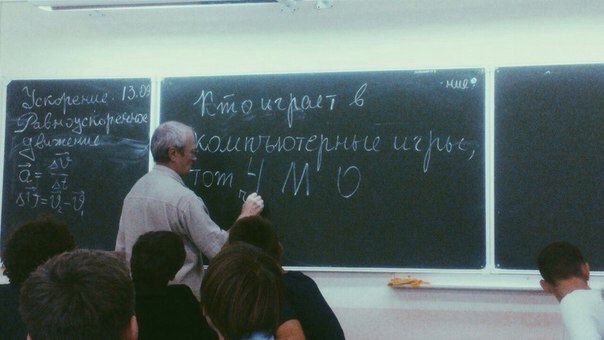 Ускорение. 13.09
Равноускоренное
движение
a = Δv
Δt
Δv = v₂ - v₁
Кто играет в
компъютерные игры,
тот Ч М О
ние?